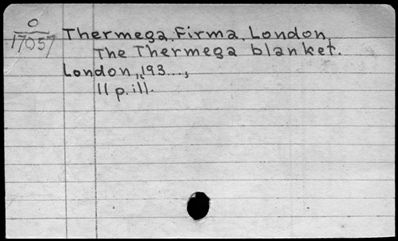 0
17057
Thermega, Firma, London,
The Thermega blanket.
London, 193...,
11 p. ill.